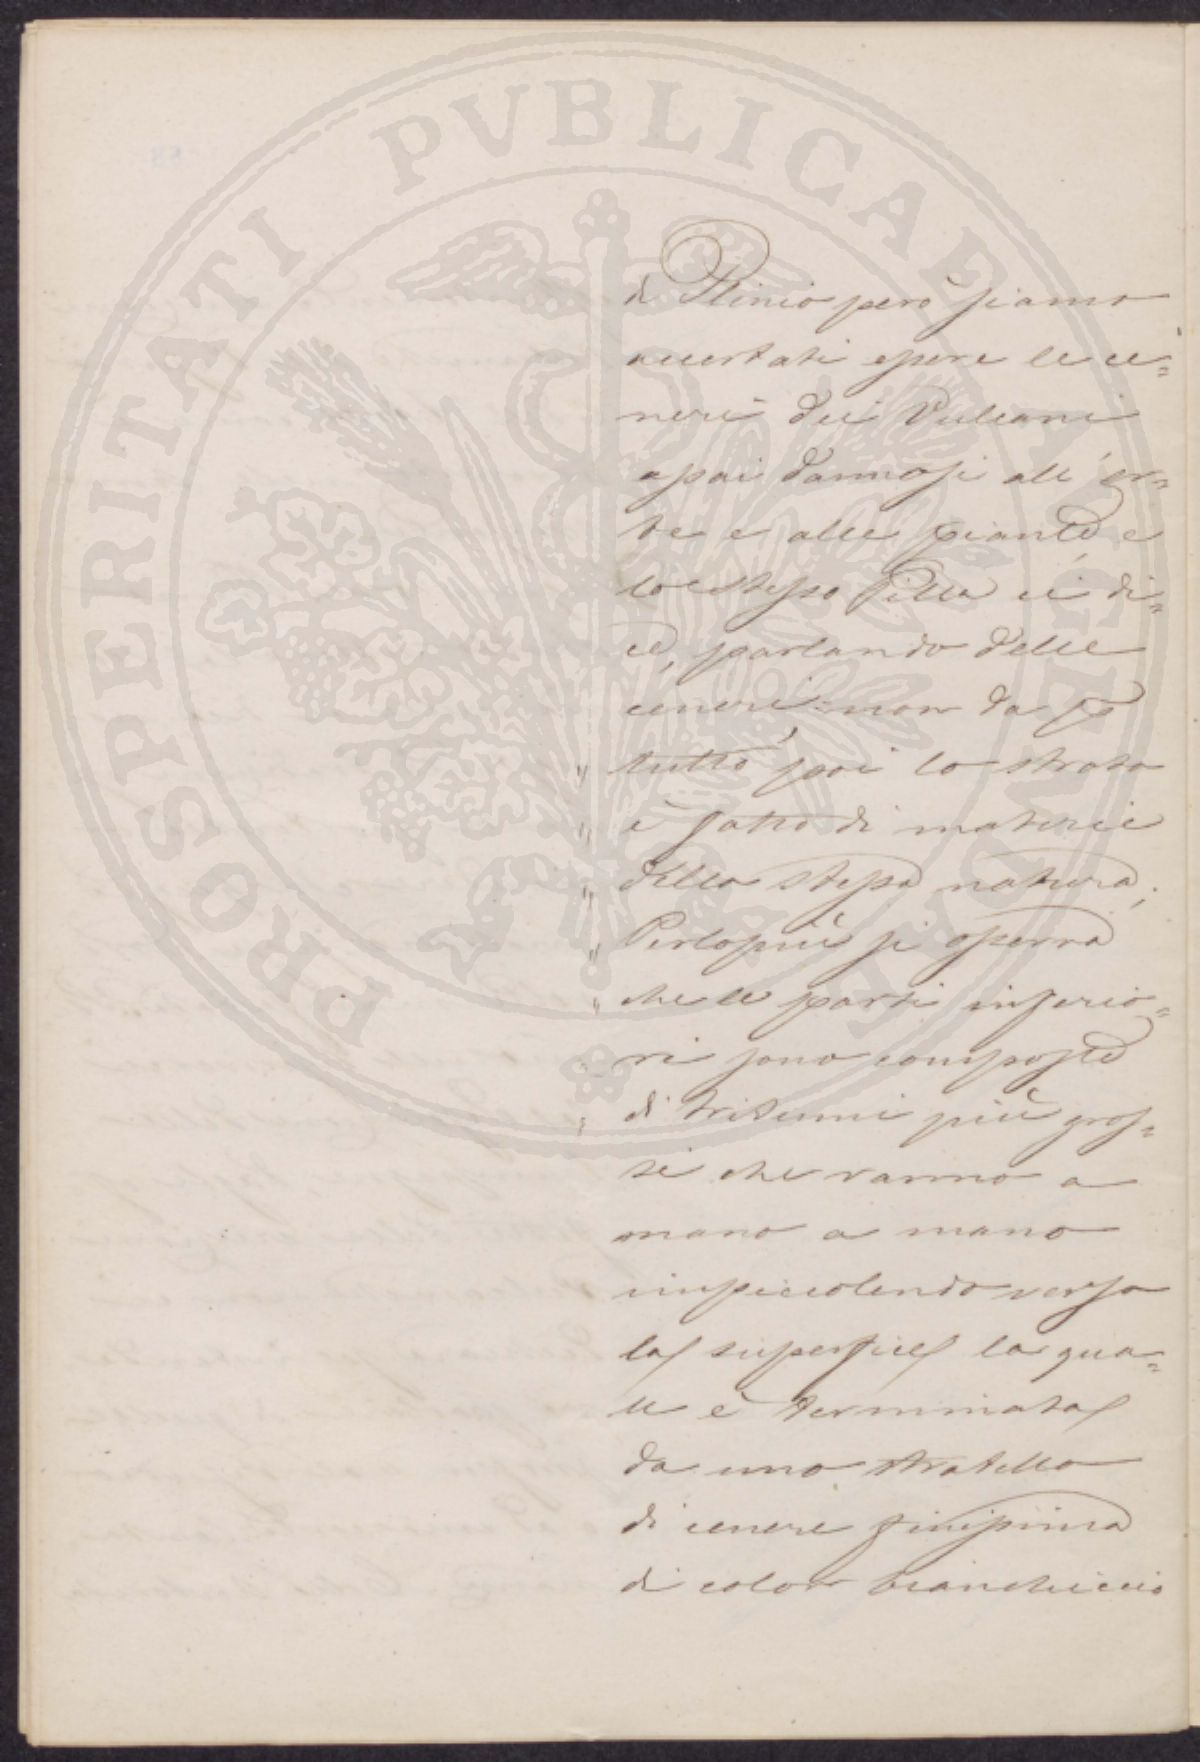 PROSPERITATI PVBLICAE AVGENDAE
di Plinio però siamo
accertati essere le ce=
neri dei Vulcani
assai dannosi all'er=
be e alle piante, e
lo stesso Pilla ci di=
ce, parlando delle
ceneri: non da p
" tutto, poi lo strato
" è fatto di materie
" della stessa natura;
" Perlopiù si osserva
" che le parti inferio=
" ri sono composte
" di tritumi più gros=
si che vanno a
mano a mano
impiccolendo verso
la superficie la qua=
le è terminata
da uno stratello
di cenere finissima
di color bianchiccio